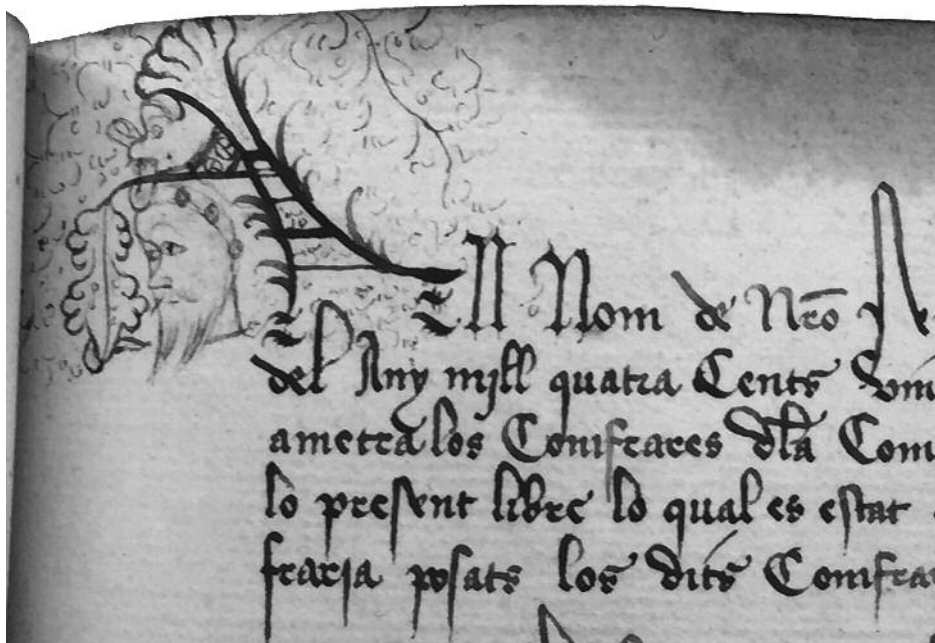 En Nom de Nro
del Any mill quatra Cents
ametra los Comfrares dla
lo present libre lo qual es estat
fraria posats los dits Comfra